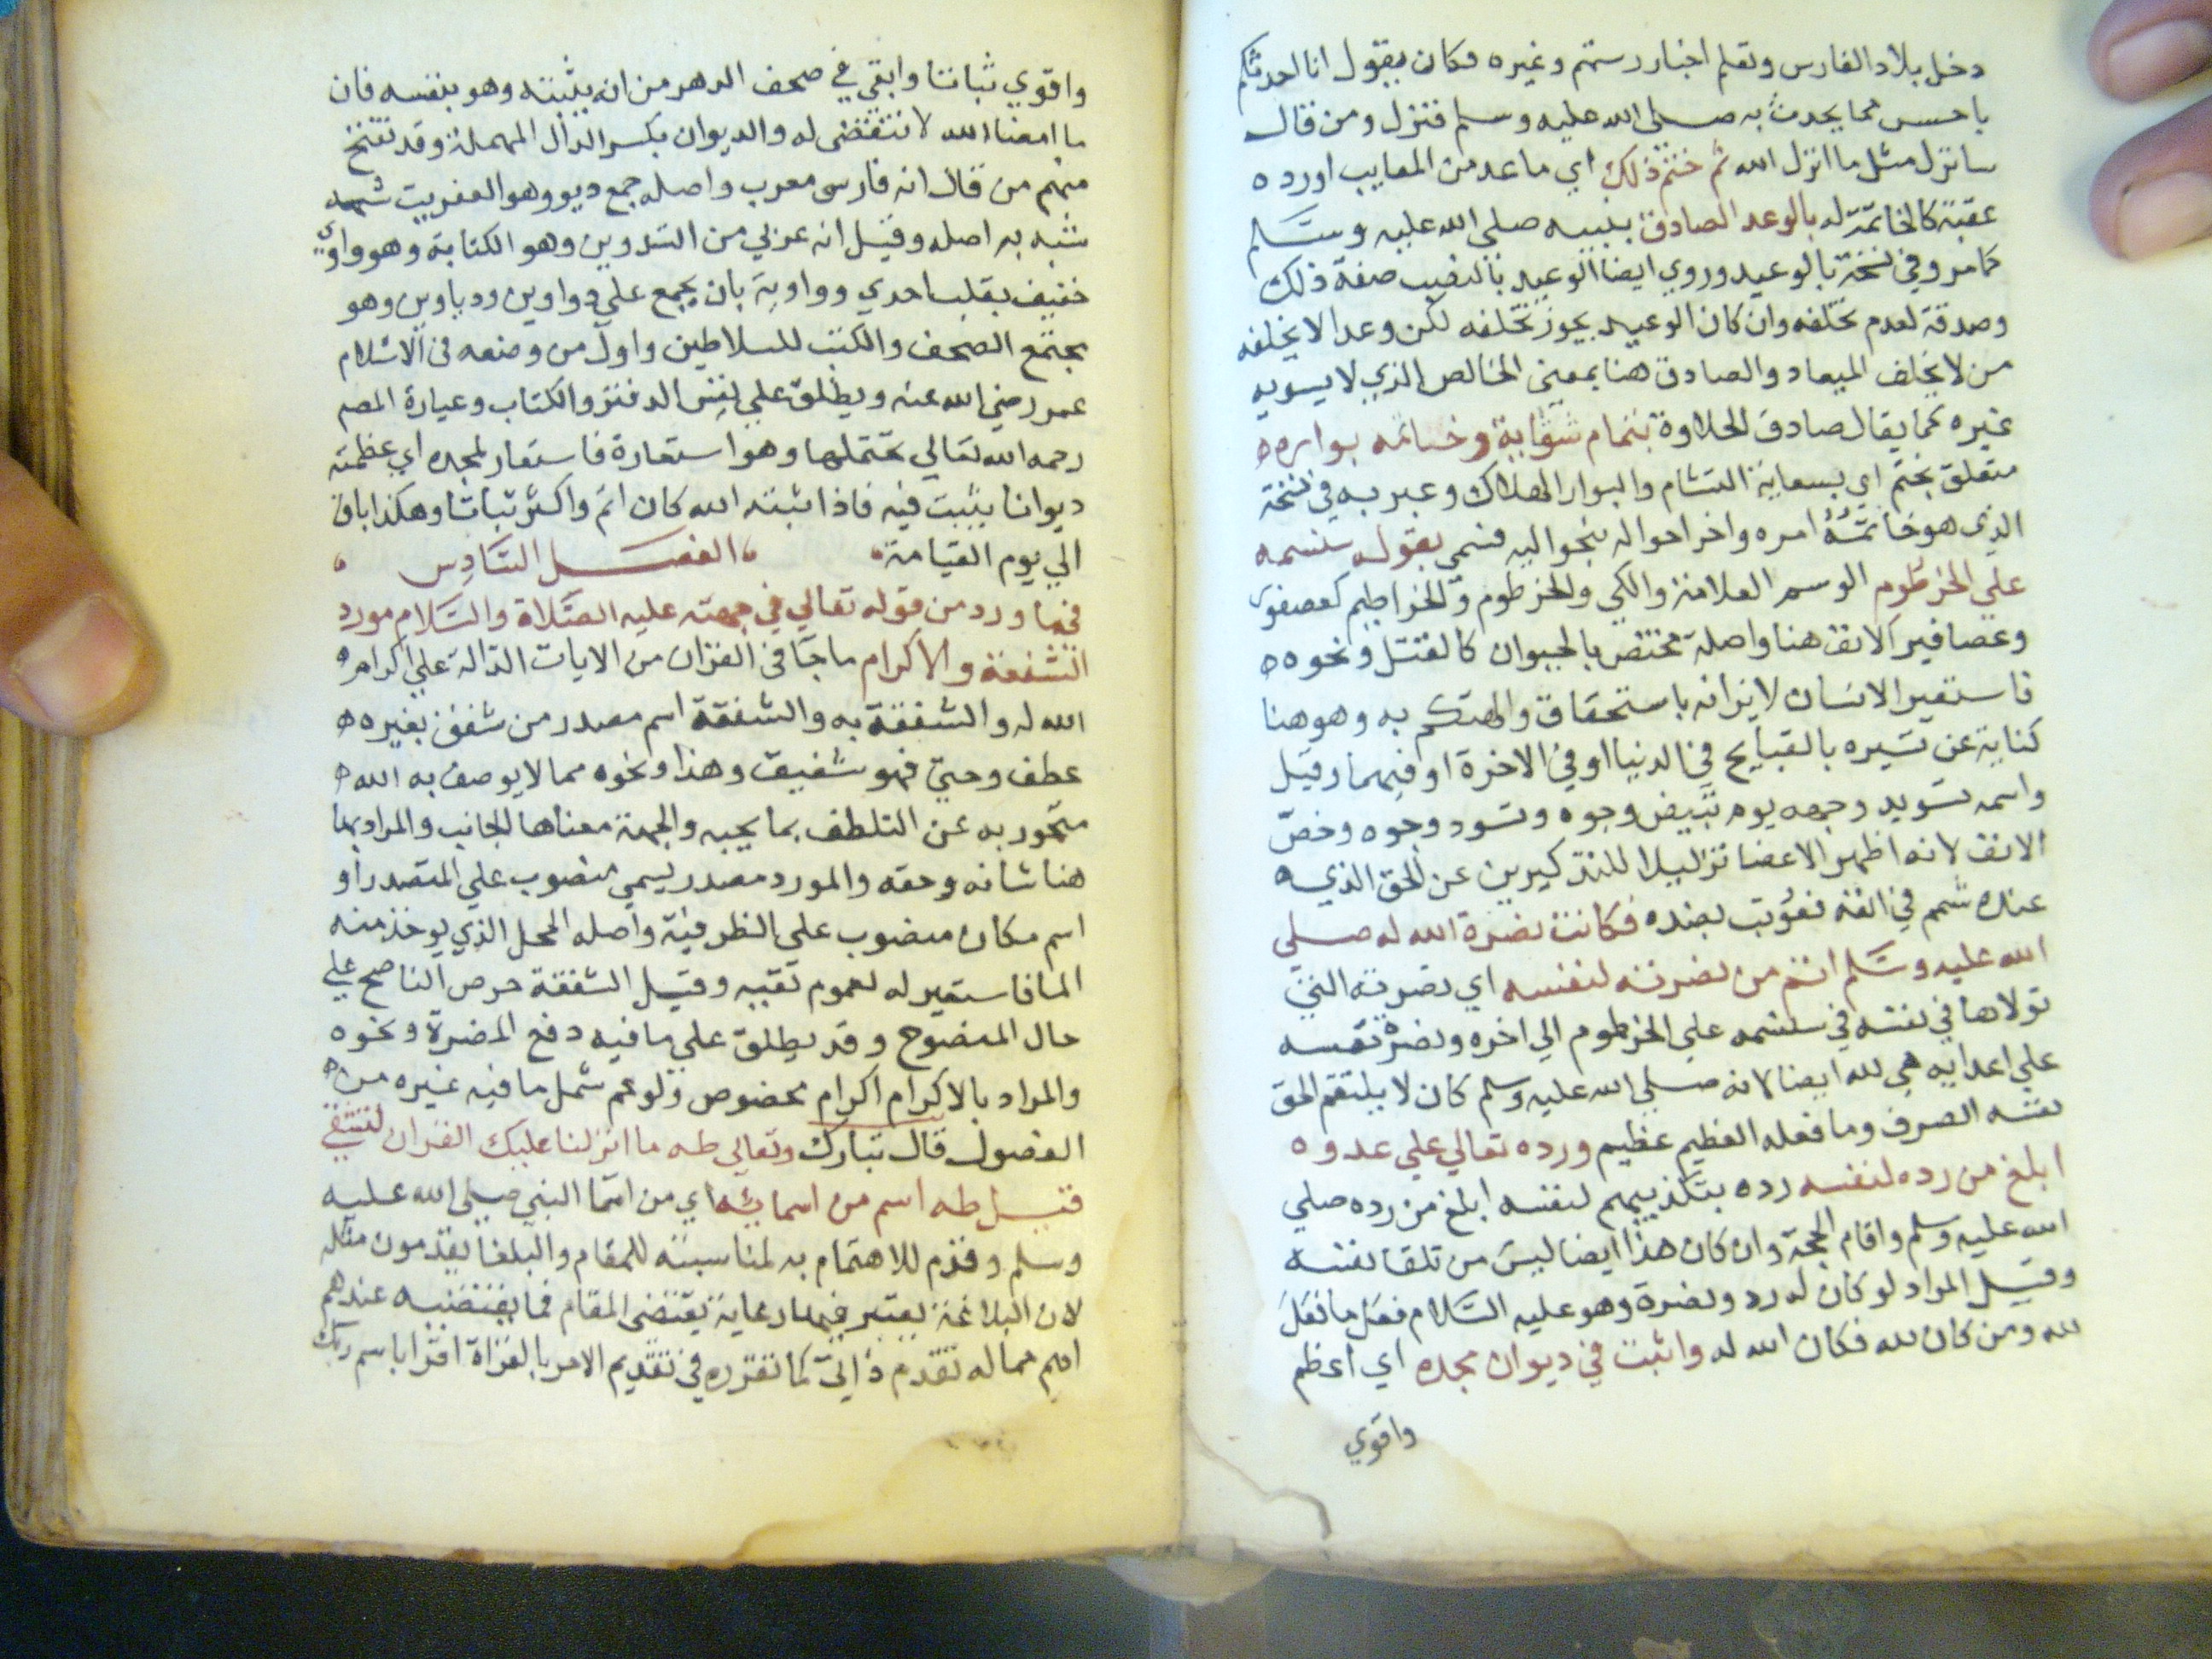 دخل بلاد الفارس وتعلم اخبار رستم وغيره فكان يقول انا احدثكم
باحسن مما يحدث به صلى الله عليه وسلم فنزل ومن قال
سانزل مثل ما انزل الله ثم ختم ذلك اي ما عد من المعايب اورده
عقبة كالخاتمة له بالوعد الصادق بلبيسه صلى الله عليه وسلم
كما مر وفي نسخة بالوعيد وروي ايضا الوعيد بالنصب صفة ذلك
وصدقة لعدم تخلفه وان كان الوعيد يجوز تخلفه لكن وعد الا يخلفه
من لا يخلف الميعاد والصادق هنا بمعنى الخالص الذي لا يسويه
غيره كما يقال صادق الحلاوة بتمام شقايه وخساته بواره ه
متعلق بختم اي بسعاية التشام والبوار الهلاك وعبر به في نسخة
الذي هو خاتمة امره واخر احواله بنحو اليه فسمي بقوله سنسمه
علي الخرطوم الوسم العلامة والكي والخرطوم والخراطيم كعصفور
وعصافير الانف هنا واصله مختص بالحيوان كالفتل ونحوه ه
فاستعير الانسان لايزانه باستحقاق والهتكم به وهو هنا
كناية عن تسيره بالقبايح في الدنيا او في الاخرة او فيهما وقيل
واسمه تسويد وجهه يوم تبيض وجوه وتسود وجوه وخص
الانف لانه اظهر الاعضا تزلبيلا للنذكيرين عن الحق الذي ه
عنده شمم في انفه فعوتب بضده فكانت نصرة الله له صلى
الله عليه وسلم اتم من نصرته لنفسه اي نصرته التي
تولاها في نفسه في سنسمه علي الخرطوم الي اخره ونصرة نفسه
علي اعدايه هي لله ايضا لانه صلى الله عليه وسلم كان لا يلتقم لحق
نفسه الصرف وما فعله العظيم عظيم ورده تعالي علي عدوه
ابلغ من رده لنفسه رده بتكذيبهم لنفسه ابلغ من رده صلي
الله عليه وسلم واقام الحجة وان كان هذا ايضا ليس من تلقا نفسه
وقيل المراد لو كان له رد ونصرة وهو عليه السلام فعل ما فعل
لله ومن كان لله فكان الله له واثبت في ديوان مجده اي اعظم
واقوي
واقوي ثباتا وابقي في صحف الدهر من انه يثبته وهو بنفسه فان
ما امضاالله لا ننتقضي له والديوان بكسر الدال المهملة وقد تفتح
منهم من قال انه فارسى معرب واصله جمع ديو وهو العفريت شبه
شبه به اصله وقيل انه عربي من التدوين وهو الكتابة وهو واوي
خفيف بقلب احدي وواوية بان يجمع علي دواوين ودياوين وهو
يجتمع الصحف والكتب للسلاطين واول من وضعه في الاسلام
عمر رضي الله عنه ويطلق علي نفس الدفتر والكتاب وعبارة المصم
رحمه الله تعالي تحتملها وهو استعارة فاستعار لمجده اي عظمته
ديوانا يثبت فيه فاذا اثبته الله كان اتم واكثر ثباتا وهكذا باق
الي يوم القيامة الفصل السادس
فيما ورد من قوله تعالي في جهته عليه الصلاة والسلام مورد
الشفقة والاكرام ما جا في القران من الايات الدالة علي اكرام ه
الله له والشفقة به والشفقة اسم مصدر من شفق بغيره ه
عطف وحني فهو شفيق وهذا ونحوه مما لا يوصف به الله ه
متجوز به عن التلطف بما يحبه والجهة معناها الجانب والمراد بها
هنا شانه وحقه والمورد مصدر يسمي منصوب علي المصدر او
اسم مكان منصوب علي الظرفية واصله المحل الذي يوخذ منه
الما فاستعير له لعموم نقيبه وقيل الشفقة حرص الناصح علي
حال المنصوح وقد يطلق علي ما فيه دفع المضرة ونحوه
والمراد بالاكرام اكرام مخصوص ولو عم شمل ما فيه غيره من ه
الفصول قال تبارك وتعالي طه ما انزلنا عليك القران لتشقي
قيل طه اسم من اسمائه اي من اسما النبي صلى الله عليه
وسلم وقدم للاهتمام به لمناسبته للمقام والبلغا يقدمون مثله
لان البلاغة يعتبر فيها رعاية يقتضى المقام فما يقتضيه عندهم
اهم مما له تقدم ذاتي كما تقرره في تقديم الامر بالقراة اقرا باسم ربك